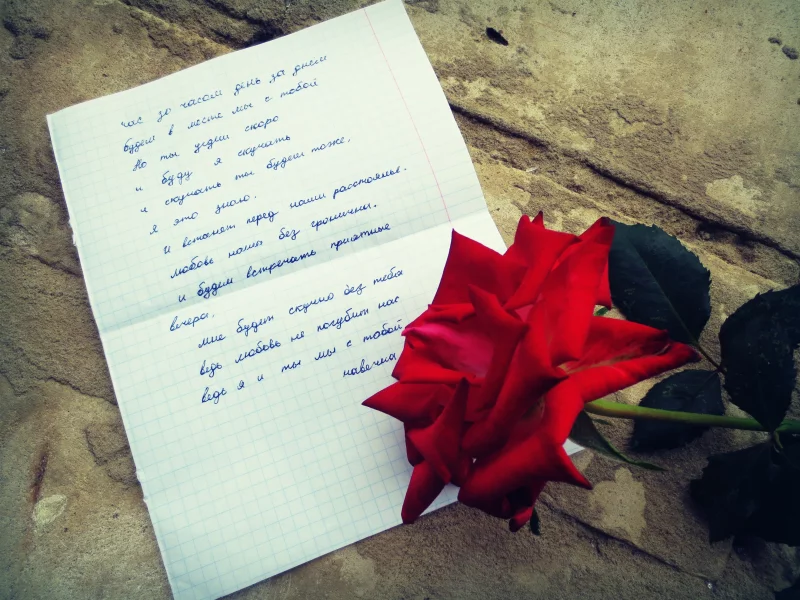 час за часом день за днем
будем в месте мы с тобой
Но ты уедеш скоро
и буду я скучать
и скучать ты будеш тоже,
я это знаю.
И встанет перед нами расстоянье.
любовь наша без гранични.
и будем встречать приятные
вечера.
мне будет скучно без тебя
ведь любовь не погубит нас
ведь я и ты мы с тобой
навечна